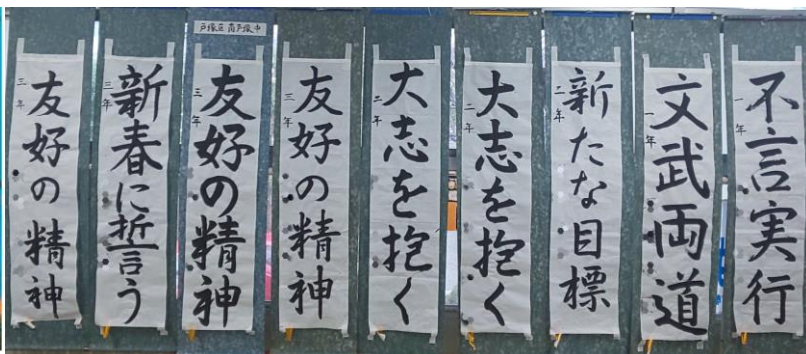 不言実行
一年
文武両道
一年
新たな目標
二年
大志を抱く
二年
大志を抱く
二年
友好の精神
三年
戸塚区 南戸塚中
友好の精神
三年
新春に誓う
三年
友好の精神
三年